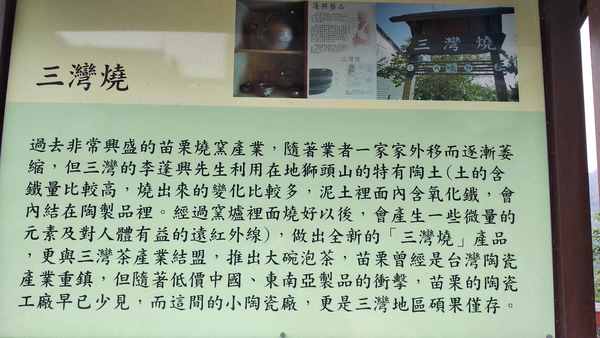 三灣燒
三灣燒
過去非常興盛的苗栗燒窯產業，隨著業者一家家外移而逐漸萎
縮，但三灣的李蓬興先生利用在地獅頭山的特有陶土(土的含
鐵量比較高，燒出來的變化比較多，泥土裡面內含氧化鐵，會
內結在陶製品裡。經過窯爐裡面燒好以後，會產生一些微量的
元素及對人體有益的遠紅外線)，做出全新的「三灣燒」產品
，更與三灣茶產業結盟，推出大碗泡茶，苗栗曾經是台灣陶瓷
產業重鎮，但隨著低價中國、東南亞製品的衝擊，苗栗的陶瓷
工廠早已少見，而這間的小陶瓷廠，更是三灣地區碩果僅存。